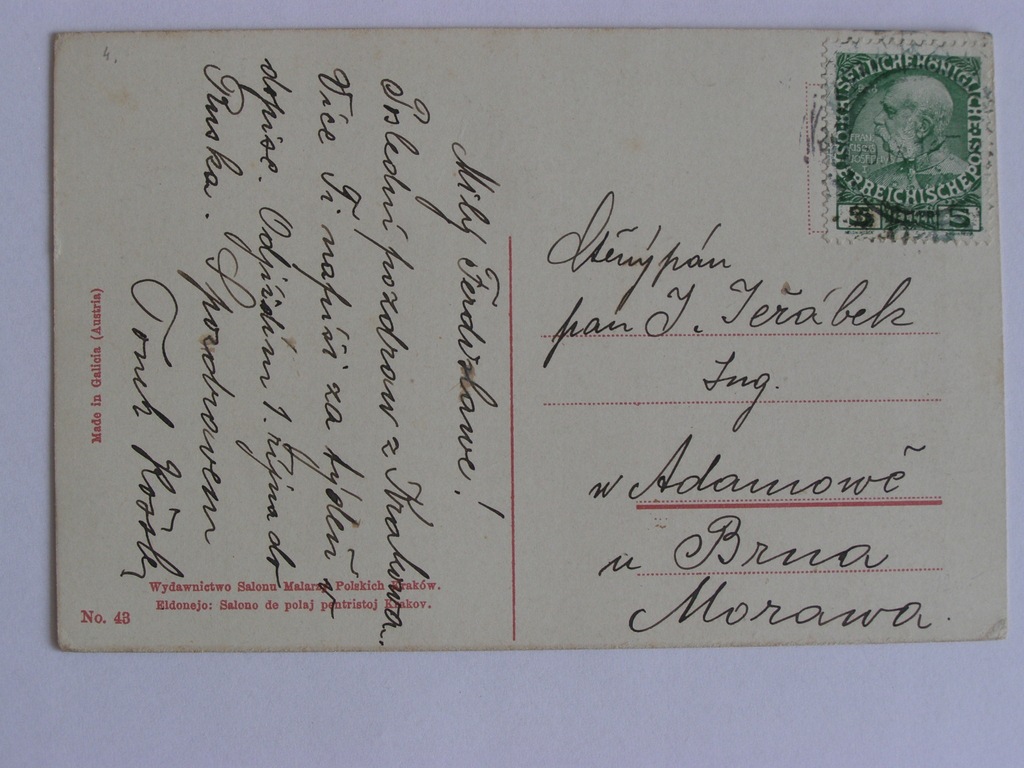 4.
Milý Ferdislawe!
Poslední pozdraw z Krakowa.
Více Ti napíši za týden w
dopise. Odjíždím 1. října do
Ruska. S pozdravem
Toneh
KAISERLICHE KÖNIGLICHE ÖSTERREICHISCHE POST
FRANCISCUS JOSEPH I
5 HELLER 5
Ctěný pán
pan J. Jeřábek
Ing.
w Adamowě
u Brna
Morawa.
Made in Galicia (Austria)
Wydawnictwo Salonu Malarzy Polskich Kraków.
Eldonejo: Salono de polaj pentristoj Krakov.
No. 43